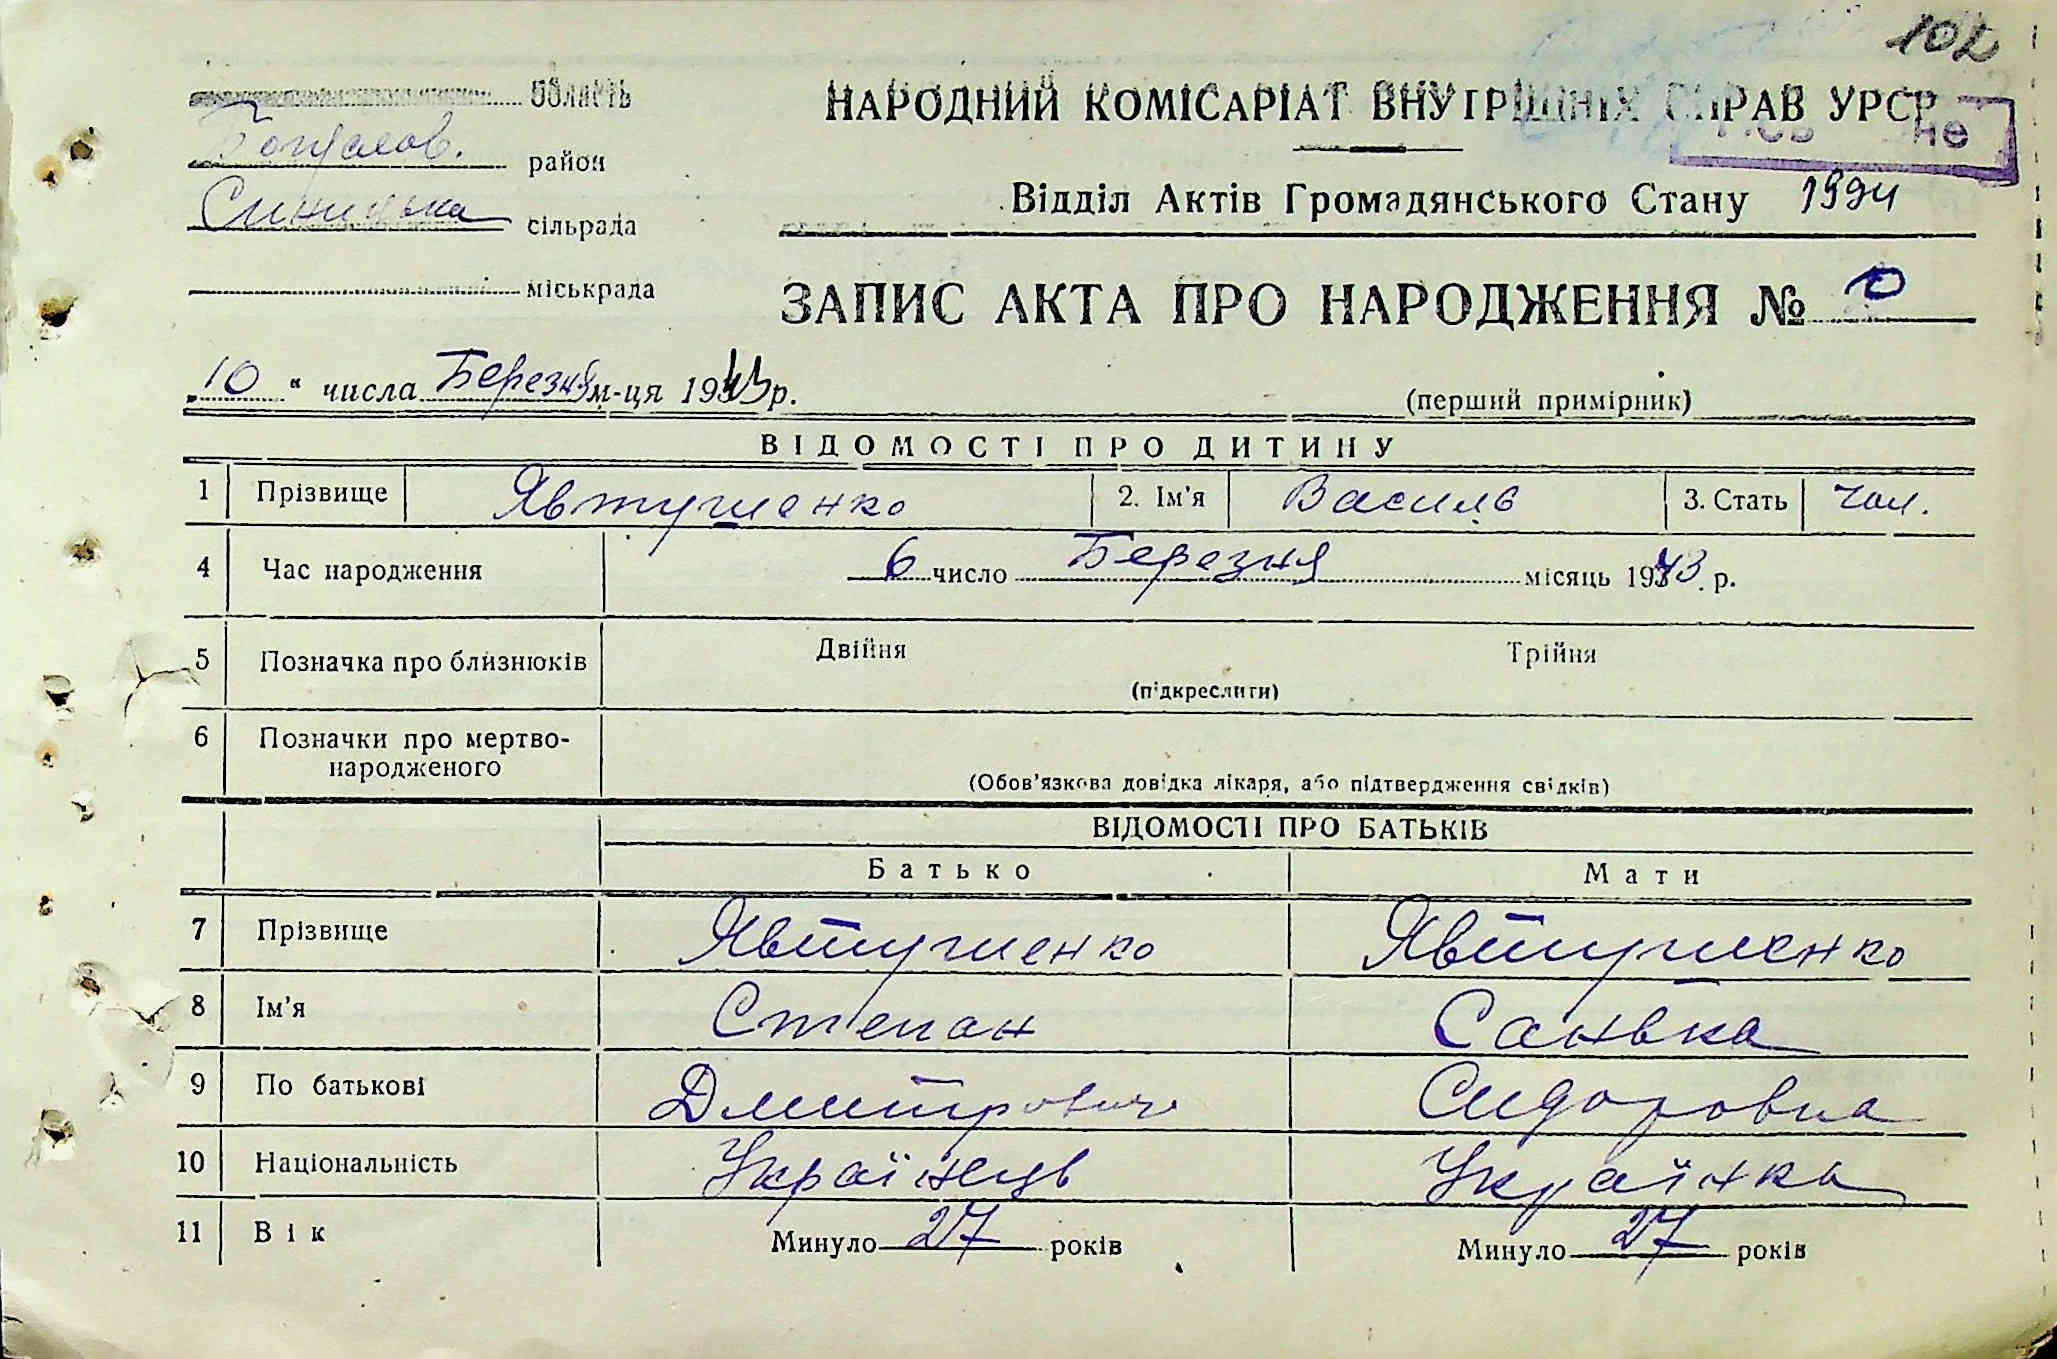 102
область
НАРОДНИЙ КОМІСАРІАТ ВНУТРІШНІХ СПРАВ УРСР
район
не
Синицька сільрада
Відділ Актів Громадянського Стану 1994
міськрада
ЗАПИС АКТА ПРО НАРОДЖЕННЯ №
„10“ числа Березня м-ця 1943 р.
(перший примірник)
ВІДОМОСТІ ПРО ДИТИНУ
1 Прізвище Явтушенко 2. Ім'я Василь 3. Стать чол.
4 Час народження 6 число Березня місяць 1943 р.
5 Позначка про близнюків Двійня Трійня
(підкреслити)
6 Позначки про мертво-
народженого
(Обов'язкова довідка лікаря, або підтвердження свідків)
ВІДОМОСТІ ПРО БАТЬКІВ
Батько Мати
7 Прізвище Явтушенко Явтушенко
8 Ім'я Степан Санька
9 По батькові Дмитрович Сидоровна
10 Національність Українець Українка
11 Вік Минуло 27 років Минуло 27 років